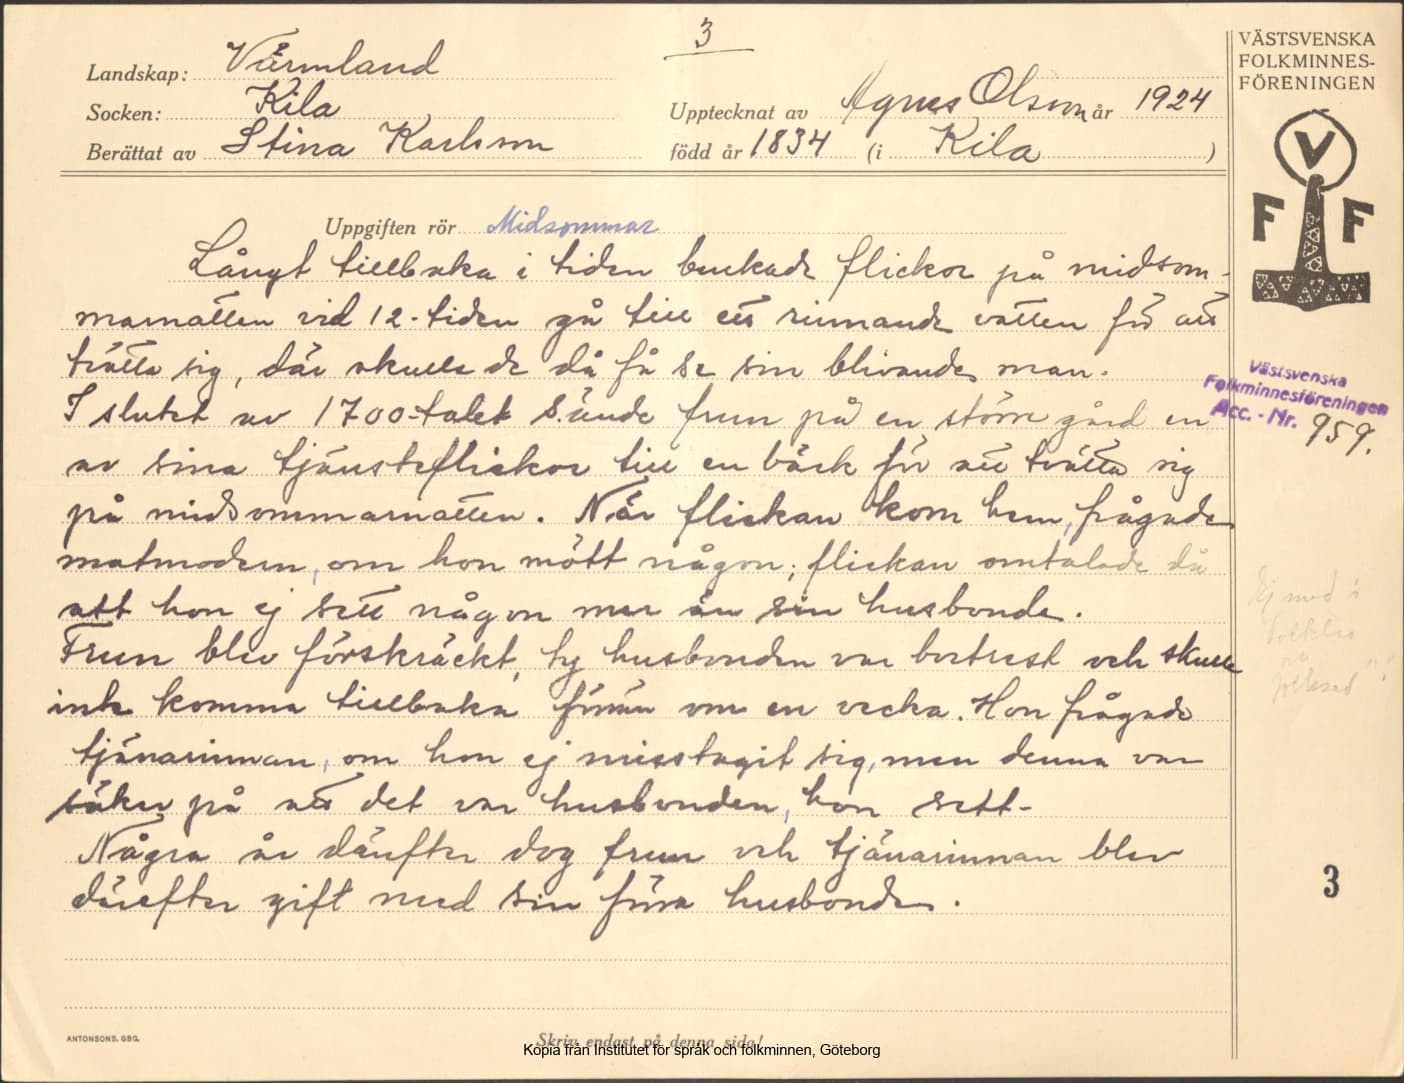 3
Landskap: Värmland
Socken: Kila
Berättat av Stina Karlsson
Upptecknat av Agnes Olsson år 1924
född år 1834 (i Kila )
VÄSTSVENSKA
FOLKMINNES-
FÖRENINGEN
V
F F
Uppgiften rör Midsommar
Långt tillbaka i tiden brukade flickor på midsom-
marnatten vid 12-tiden gå till ett rinnande vatten för att
tvätta sig, där skulle de då få se sin blivande man.
I slutet av 1700-talet sände frun på en större gård en
av sina tjänsteflickor till en bäck för att tvätta sig
på midsommarnatten. När flickan kom hem, frågade
matmodern, om hon mött någon; flickan omtalade då
att hon ej sett någon mer än sin husbonde.
Frun blev förskräckt, ty husbonden var bortrest och skulle
inte komma tillbaka förrän om en vecka. Hon frågade
tjänarinnan, om hon ej misstagit sig, men denna var
säker på att det var husbonden, hon sett-
Några år därefter dog frun och tjänarinnan blev
därefter gift med sin förra husbonde.
Västsvenska
Folkminnesföreningen
Acc. - Nr. 959.
Ej med i
och
3
ANTONSONS, GBG.
Skriv endast på denna sida!
Kopia från Institutet för språk och folkminnen, Göteborg